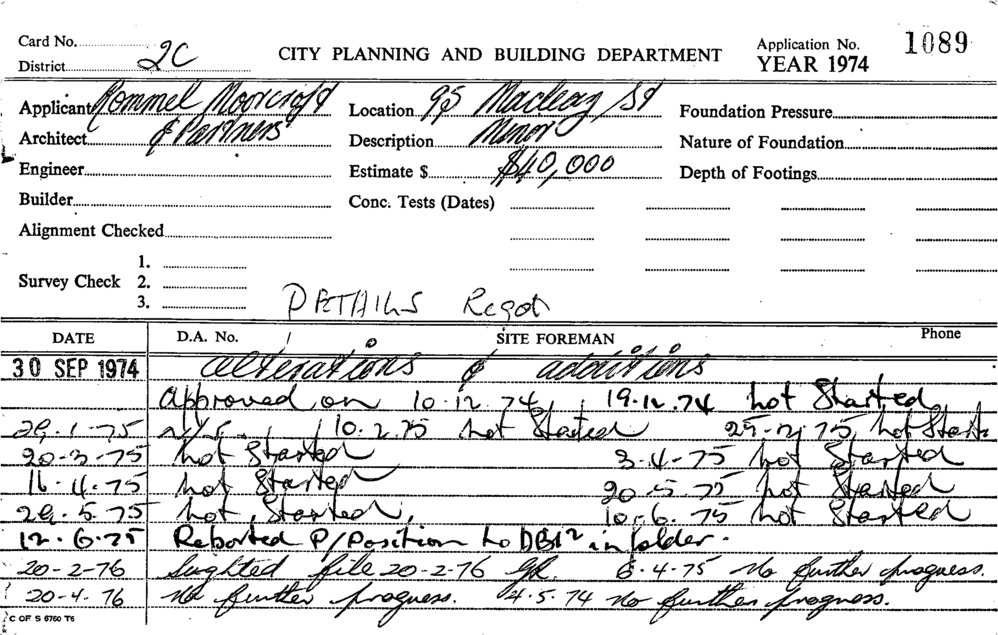 Card No. 2C CITY PLANNING AND BUILDING DEPARTMENT Application No. 1089
District YEAR 1974
Applicant Rommel Moorcroft Location 95 Macleay St Foundation Pressure
Architect & Partners Description Minor Nature of Foundation
Engineer Estimate $ $40,000 Depth of Footings
Builder Conc. Tests (Dates)
Alignment Checked
Survey Check 1.
2.
3.
DETAILS Reqd
DATE D.A. No. SITE FOREMAN Phone
30 SEP 1974 alterations & additions
Approved on 10.12.74 19.12.74 not Started
29.1.75 N/S. 10.2.75 not Started not Start
20-3-75 not Started 3-4-75 not Started
16.4.75 not Started 20.5.75 not Started
29.5.75 not Started. 10.6.75 not Started
12.6.75 Reported P/Position to in folder.
20-2-76 Sughted file 20-2-76 6-4-75 no further progress.
20-4-76 no further progress. 4.5.74 no further progress.
C OF. S 6760 T5